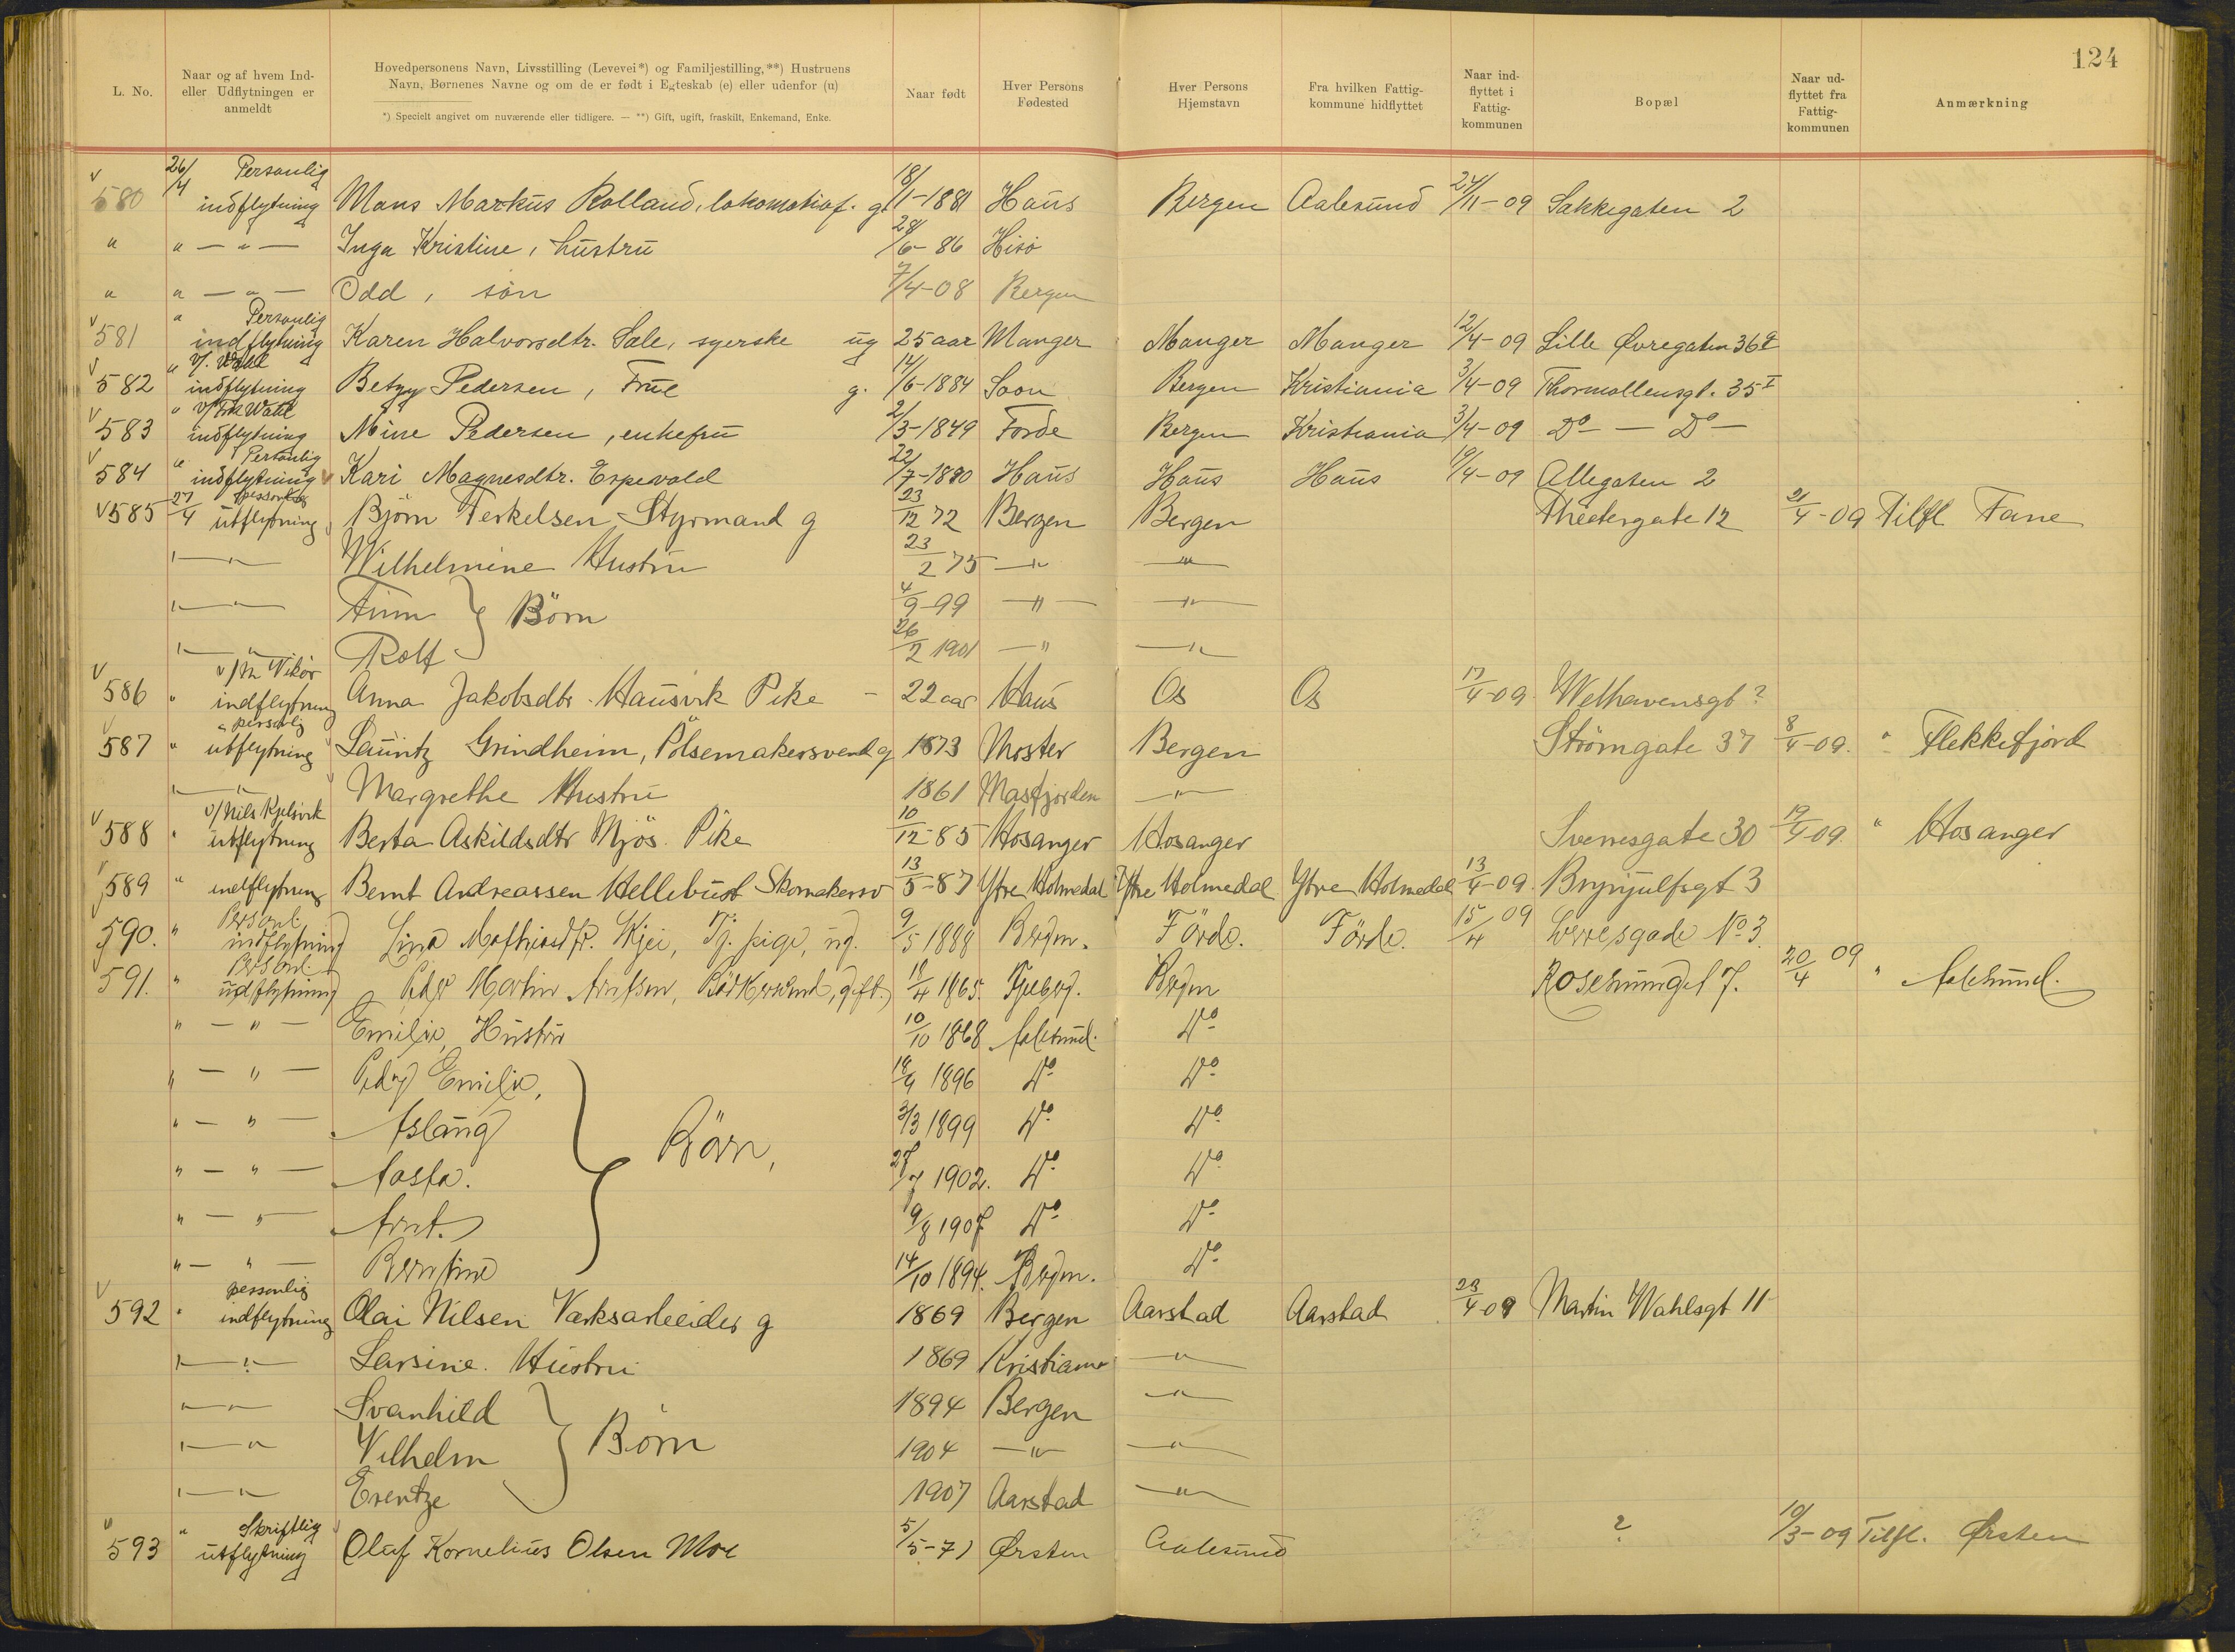 124
L. No.
Naar og af hvem Ind- eller Udflytningen er anmeldt
Hovedpersonens Navn, Livsstilling (Levevei*) og Familjestilling,**) Hustruens Navn, Børnenes Navne og om de er født i Egteskab (e) eller udenfor (u)
*) Specielt angivet om nuværende eller tidligere. — **) Gift, ugift, fraskilt, Enkemand, Enke.
Naar født
Hver Persons Fødested
Hver Persons Hjemstavn
Fra hvilken Fattig- kommune hidflyttet
Naar ind- flyttet i Fattig- kommunen
Bopæl
Naar ud- flyttet fra Fattig- kommunen
Anmærkning
580 26/4 Personlig indflytning Mons Markus Rolland, lokomotivf. g. 18/1-1881 Haus Bergen Aalesund 24/11-09 Sakkegaten 2
" " — " — Inga Kristine, hustru 28/6-86 Hisö
" " — " — Odd, sön 7/4-08 Bergen
581 " Personlig indflytning Karen Halvorsdtr. Sale, syerske ug 25 aar Manger Manger Manger 12/4-09 Lille Øvregaten 36
582 " indflytning Betzy Pedersen, Frue g. 14/6-1884 Soon Bergen Kristiania 3/4-09 Thormøllensgt. 35 I
583 " indflytning Mine Pedersen, enkefru 2/3-1849 Førde Bergen Kristiania 3/4-09 Do — Do —
584 " Personlig indflytning Kari Magnesdtr. Espevold 22/7-1890 Haus Haus Haus 19/4-09 Allegaten 2
585 27/4 personlig utflytning Björn Terkelsen, Styrmand g 23/12 72 Bergen Bergen Theatergate 12 21/4-09 Tilfl. Fane
— " — Wilhelmine Hustru 23/2 75 — " — " —
— " — Finn } Börn 4/9-99 — " — — " —
— " — Rolf 26/2 1901 — " — " —
586 " indflytning Anna Jakobsdtr. Hausvik Pike - 22 aar Haus Os Os 17/4-09 Welhavensgt ?
587 " personlig utflytning Lauritz Grindheim, Pölsemakersvend g 1873 Moster Bergen Strömgate 37 8/4-09. " Flekkefjord
— " — Margrethe Hustru 1861 Masfjorden — " —
588 " v/ Nils Kjelsvik utflytning Berta Askildsdtr Mjös. Pike 10/12-85 Hosanger Hosanger Sverresgate 30 19/4-09. " Hosanger
589 " indflytning Bernt Andreassen Hellebust Skomakersv 13/5-87 Ytre Holmedal Ytre Holmedal Ytre Holmedal 13/4-09. Brynjulfsgt 3
590. " Personl. indflytning Lina Mathiasdtr. Skjei, Tj. pige, ug. 9/5 1888 Bergen. Förde. Förde. 15/4 09 Sverresgade No 3.
591. " Personl. udflytning Peder Martin Arntsen, Bödkersvend, gift. 18/4 1865. Bergen Rosenkrundgt 7. 20/4 09 " Aalesund.
" — " — Emilie, Hustru 10/10 1868 Aalesund. Do
" — " — Emilie, 18/9 1896 Do Do
" — " — Aslaug } Börn, 3/3 1899 Do Do
" — " — Aasta. 1902. Do Do
" — " — Arnt. 9/8 1907 Do Do
" — " — Berntine 14/10 1894. Bergen. Do
592 " personlig indflytning Olai Nilsen Værksarbeider g 1869 Bergen Aarstad Aarstad 23/4-09 Martin Wahlsgt 11
— " — Larsine. Hustru 1869 Kristiania — " —
— " — Svanhild 1894 Bergen — " —
— " — Vilhelm } Börn 1904 — " — — " —
— " — Erentze 1907 Aarstad — " —
593 " Skriftlig utflytning Oluf Kornelius Olsen Moe 5/5-71 Ørsten Aalesund ? 10/3-09 Tilfl. Ørsten